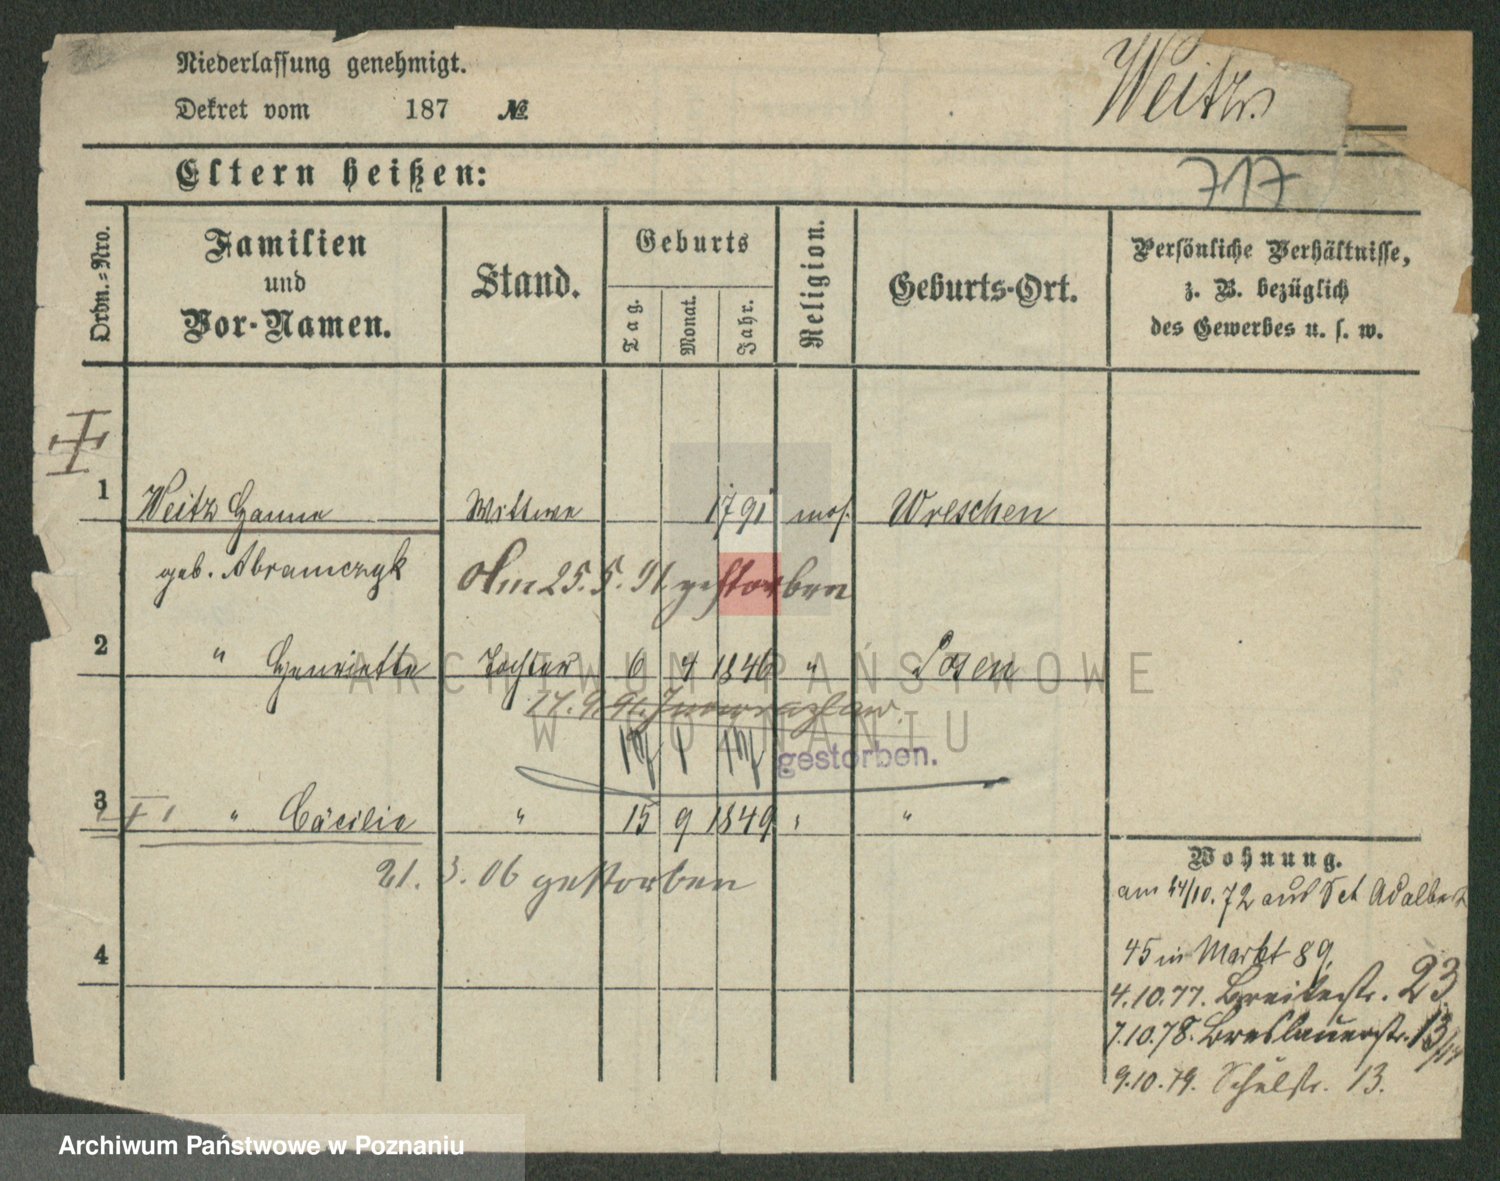 Niederlassung genehmigt.
Weitz.
Dekret vom 187 №
Eltern heißen:
717
Ordn.-Nro.
Familien
und
Vor-Namen.
Stand.
Geburts
Tag.
Monat.
Jahr.
Religion.
Geburts-Ort.
Persönliche Verhältnisse,
z. B. bezüglich
des Gewerbes u. s. w.
1 Weitz Hanne Wittwe 1791 mos. Wreschen
geb. Abramczyk
Am 25.5.91. gestorben
2 " Henriette Tochter 6 4 1846 " Posen
17.9.91. Inowrazlaw.
gestorben.
3 " Cäcilie " 15 9 1849 " "
21. 3. 06 gestorben
4
Wohnung.
am 14/10. 72 aus Sct Adalbert
45 in Markt 89.
4.10.77. Breitestr. 23
7.10.78. Breslauerstr. 13/14
9.10.79. Schulstr. 13.
ARCHIWUM PAŃSTWOWE
W POZNANIU
Archiwum Państwowe w Poznaniu